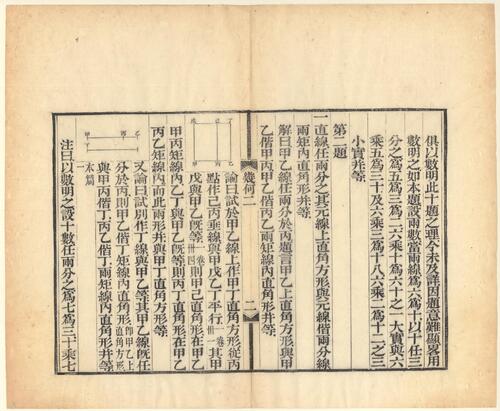 俱以數明此十題之理今未及詳因題意難顯畧用
數明之如本題設兩數當兩線爲六爲十以十任三
分之爲五爲三爲二六乘十爲六十之一大實與六
乘五爲三十及六乘三爲十八六乘二爲十二之三
小實幷等
第二題
一直線任兩分之其元線上直角方形與元線偕兩分線
兩矩内直角形幷等
解曰甲乙線任兩分於丙題言甲乙上直角方形與甲
乙偕甲丙甲乙偕丙乙兩矩線内直角形幷等
幾何二
二
論曰試於甲乙線上作甲丁直角方形從丙
點作己丙垂線與甲戊乙丁平行一卷卅一其甲
戊與甲乙既等一卷卅四則甲己直角形在甲乙
甲丙矩線内乙丁與甲乙既等則丙丁直角形在甲乙
丙乙矩線内而此兩形幷與甲丁直角方形等
又論曰試別作丁線與甲乙等其甲乙線既任
分於丙則甲乙偕丁矩線内直角形即甲乙上直角方形
與甲丙偕丁丙乙偕丁兩矩線内直角形幷等
本篇一
注曰以數明之設十數任兩分之爲七爲三十乘七